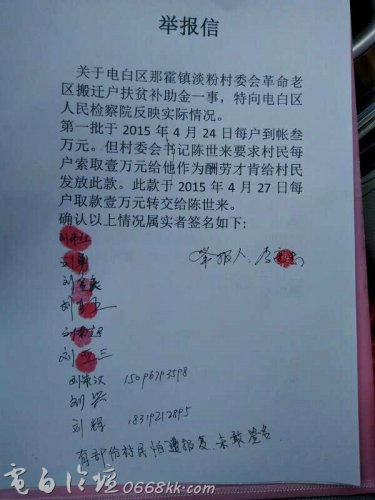 举报信
关于电白区那霍镇淡粉村委会革命老
区搬迁户扶贫补助金一事，特向电白区
人民检察院反映实际情况。
第一批于 2015 年 4 月 24 日每户到帐叁
万元。但村委会书记陈世来要求村民每
户索取壹万元给他作为酬劳才肯给村民
发放此款。此款于 2015 年 4 月 27 日每
户取款壹万元转交给陈世来。
确认以上情况属实者签名如下:
举报人: 李
刘
刘勇
刘
刘
刘
刘亚三
刘荣汉 15096793598
刘兴
刘辉 18319212895
有部份村民怕遭报复未敢签名
電白论坛 0668kk.com